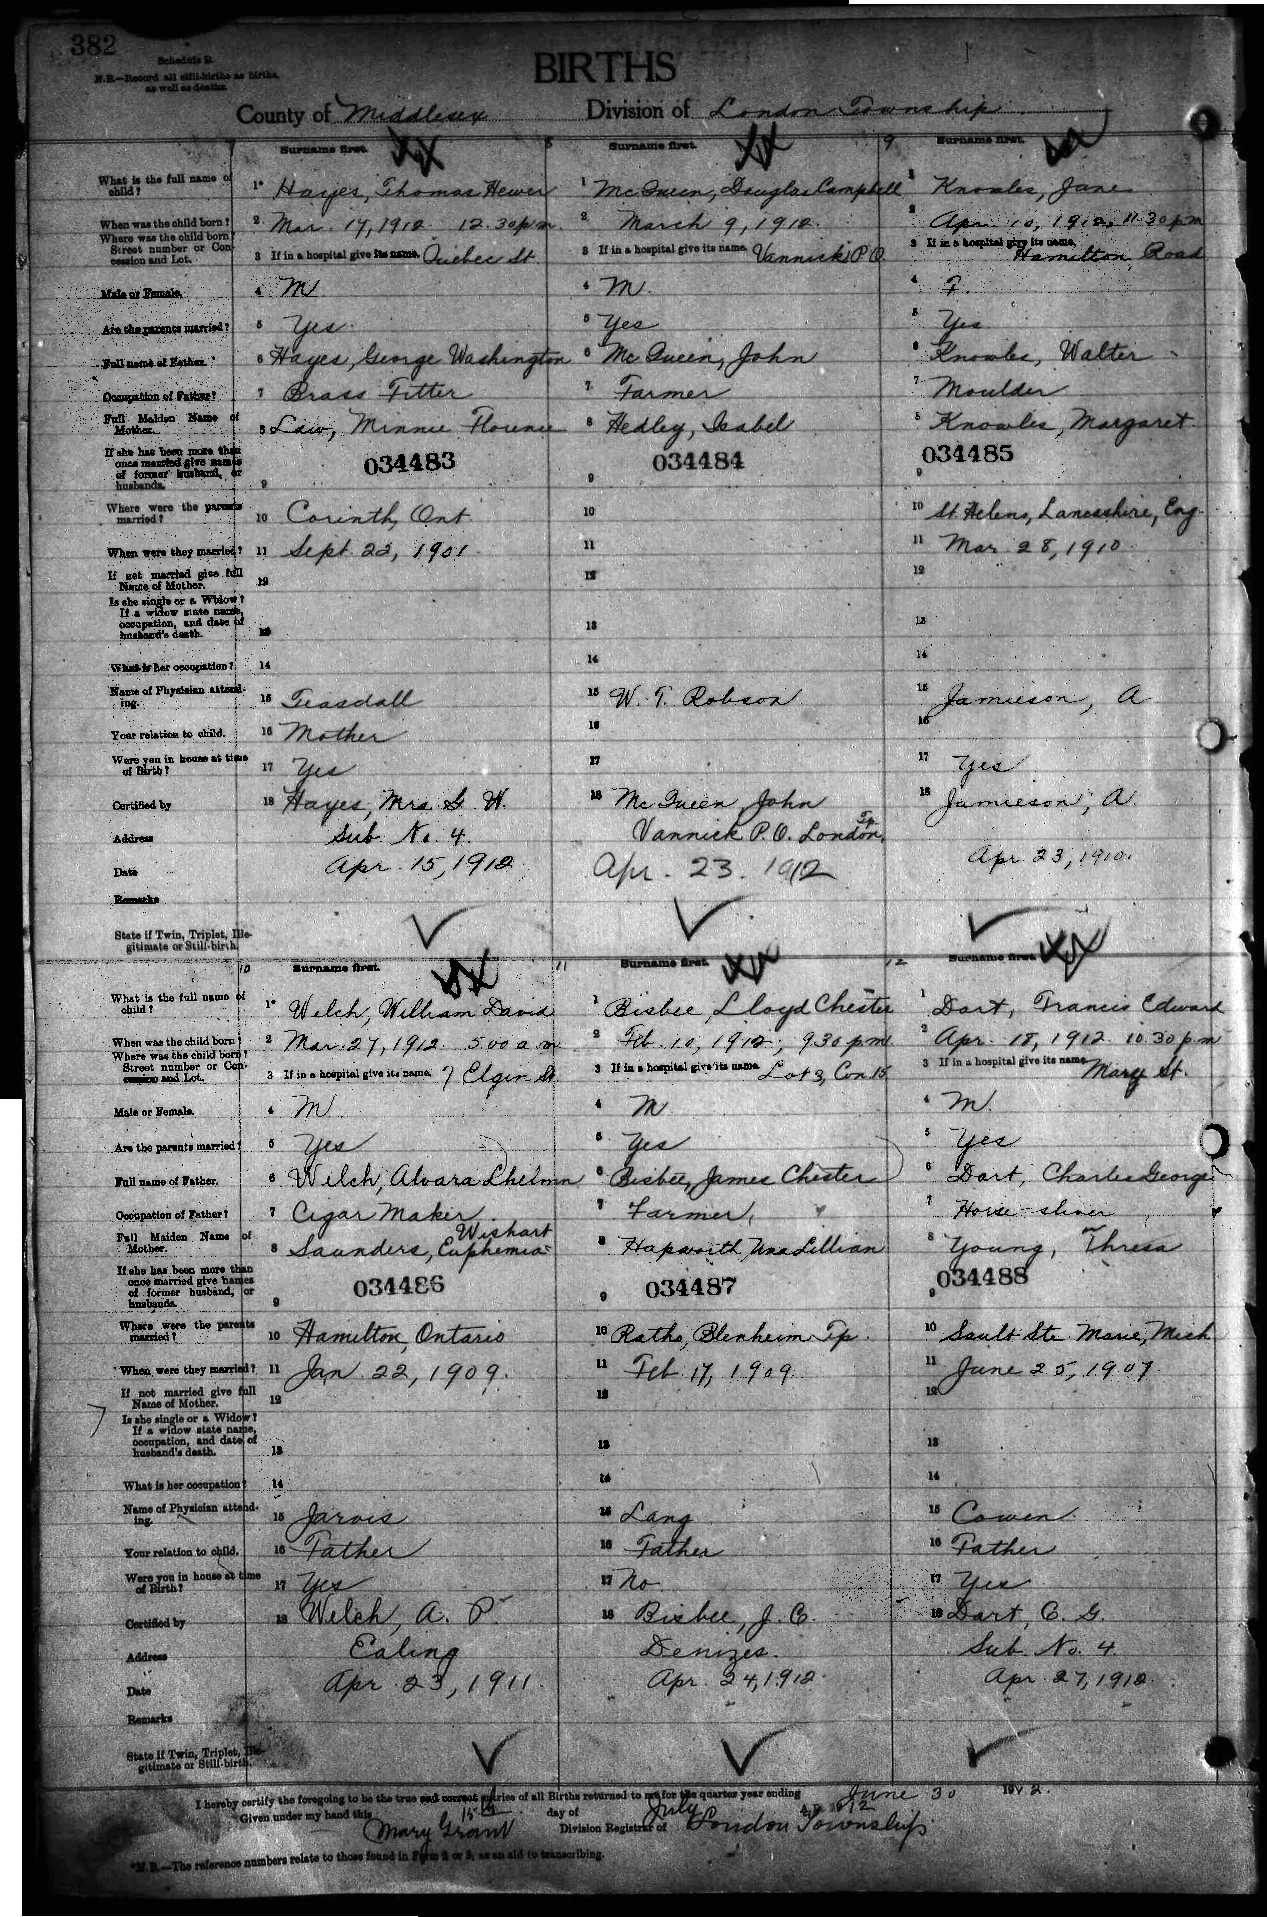 382
Schedule B.
N.B.—Record all still-births as births,
as well as deaths.
BIRTHS
County of Middlesex Division of London Township
7 Surname first. 8 Surname first. 9 Surname first.
What is the full name of child? 1* Hayes, Thomas Hewer 1 McQueen, Douglas Campbell 1 Knowles, Jane
When was the child born? 2 Mar. 17, 1912 12.30 p.m. 2 March 9, 1912. 2 Apr. 10, 1912, 11.30 p.m
Where was the child born? Street number or Concession and Lot. 3 If in a hospital give its name. Quebec St. 3 If in a hospital give its name. Vannick P.O. 3 If in a hospital give its name. Hamilton Road
Male or Female. 4 M 4 M. 4 F.
Are the parents married? 5 Yes 5 Yes 5 Yes
Full name of Father. 6 Hayes, George Washington 6 McQueen, John 6 Knowles, Walter
Occupation of Father? 7 Brass Fitter 7 Farmer 7 Moulder
Full Maiden Name of Mother. 8 Law, Minnie Florence 8 Hedley, Isabel 8 Knowles, Margaret
If she has been more than once married give names of former husband, or husbands. 9 034483 9 034484 9 034485
Where were the parents married? 10 Corinth, Ont. 10 10 St. Helens, Lancashire, Eng.
When were they married? 11 Sept. 22, 1901. 11 11 Mar 28, 1910
If not married give full Name of Mother. 12 12 12
Is she single or a Widow? If a widow state name, occupation, and date of husband's death. 13 13 13
What is her occupation? 14 14 14
Name of Physician attending. 15 Teasdall 15 W. T. Robson 15 Jamieson, A
Your relation to child. 16 Mother 16 16
Were you in house at time of Birth? 17 Yes 17 17 Yes
Certified by 18 Hayes, Mrs. G. W. 18 McQueen, John 18 Jamieson, A.
Address Sub. No. 4. Vannick P.O. London Tp.
Date Apr. 15, 1912 Apr. 23. 1912 Apr 23, 1910.
Remarks
State if Twin, Triplet, Illegitimate or Still-birth.
10 Surname first. 11 Surname first. 12 Surname first.
What is the full name of child? 1* Welch, William David 1 Bisbee, Lloyd Chester 1 Dart, Francis Edward
When was the child born? 2 Mar. 27, 1912. 5 00 a.m 2 Feb. 10, 1912, 9 30 p.m. 2 Apr. 18, 1912 10.30 p.m
Where was the child born? Street number or Concession and Lot. 3 If in a hospital give its name. 7 Elgin St. 3 If in a hospital give its name. Lot 3, Con 15 3 If in a hospital give its name. Mary St.
Male or Female. 4 M. 4 M 4 M.
Are the parents married? 5 Yes 5 Yes 5 Yes
Full name of Father. 6 Welch, Alvara 6 Bisbee, James Chester 6 Dart, Charles George
Occupation of Father? 7 Cigar Maker 7 Farmer, 7 Horse-shoer
Full Maiden Name of Mother. 8 Saunders, Euphemia Wishart 8 Hapworth, Una Lillian 8 Young, Thresa
If she has been more than once married give names of former husband, or husbands. 9 034486 9 034487 9 034488
Where were the parents married? 10 Hamilton, Ontario 10 Ratho, Blenheim Tp. 10 Sault Ste. Marie, Mich
When were they married? 11 Jan 22, 1909. 11 Feb. 17, 1909 11 June 25, 1907.
If not married give full Name of Mother. 12 12 12
Is she single or a Widow? If a widow state name, occupation, and date of husband's death. 13 13 13
What is her occupation? 14 14 14
Name of Physician attending. 15 Jarvis 15 Lang 15 Cowen
Your relation to child. 16 Father 16 Father 16 Father
Were you in house at time of Birth? 17 Yes 17 No 17 Yes
Certified by 18 Welch, A. P 18 Bisbee, J. C. 18 Dart, C. G.
Address Ealing Denizes. Sub. No. 4.
Date Apr. 23, 1911. Apr. 24, 1912. Apr 27, 1912.
Remarks
State if Twin, Triplet, Illegitimate or Still-birth.
I hereby certify the foregoing to be the true and correct entries of all Births returned to me for the quarter year ending June 30 1912.
Given under my hand this 15th day of July A.D. 1912
Mary Grant Division Registrar of London Township.
*N.B.—The reference numbers relate to those found in Form 2 or 3, as an aid to transcribing.